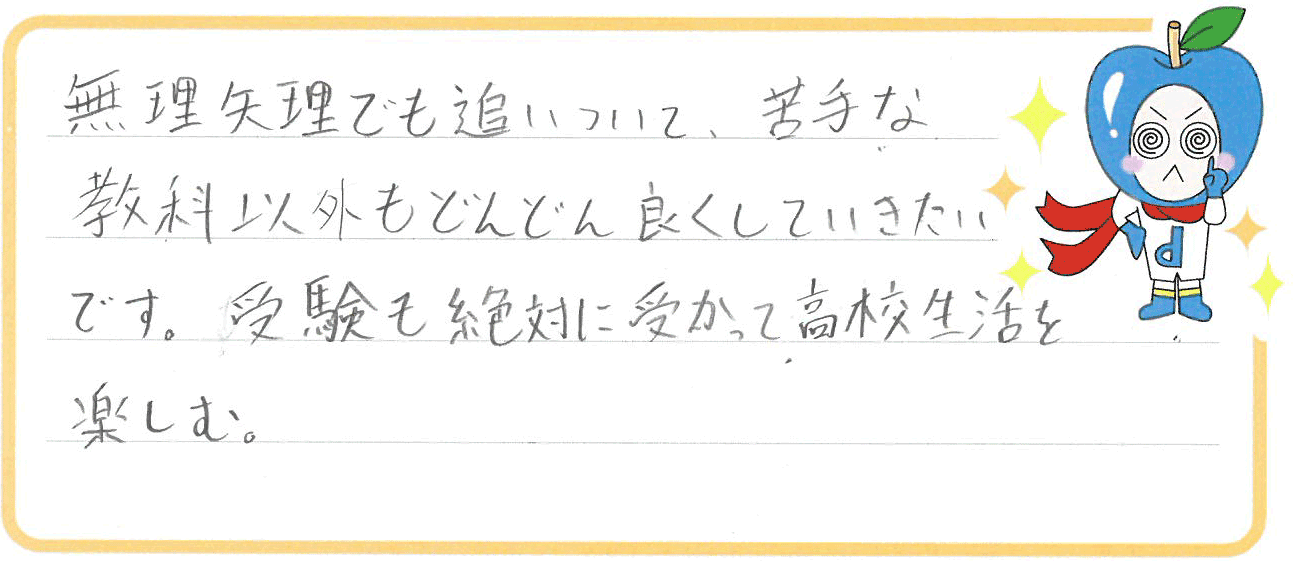 無理矢理でも追いついて、苦手な
教科以外もどんどん良くしていきたい
です。受験も絶対に受かって高校生活を
楽しむ。